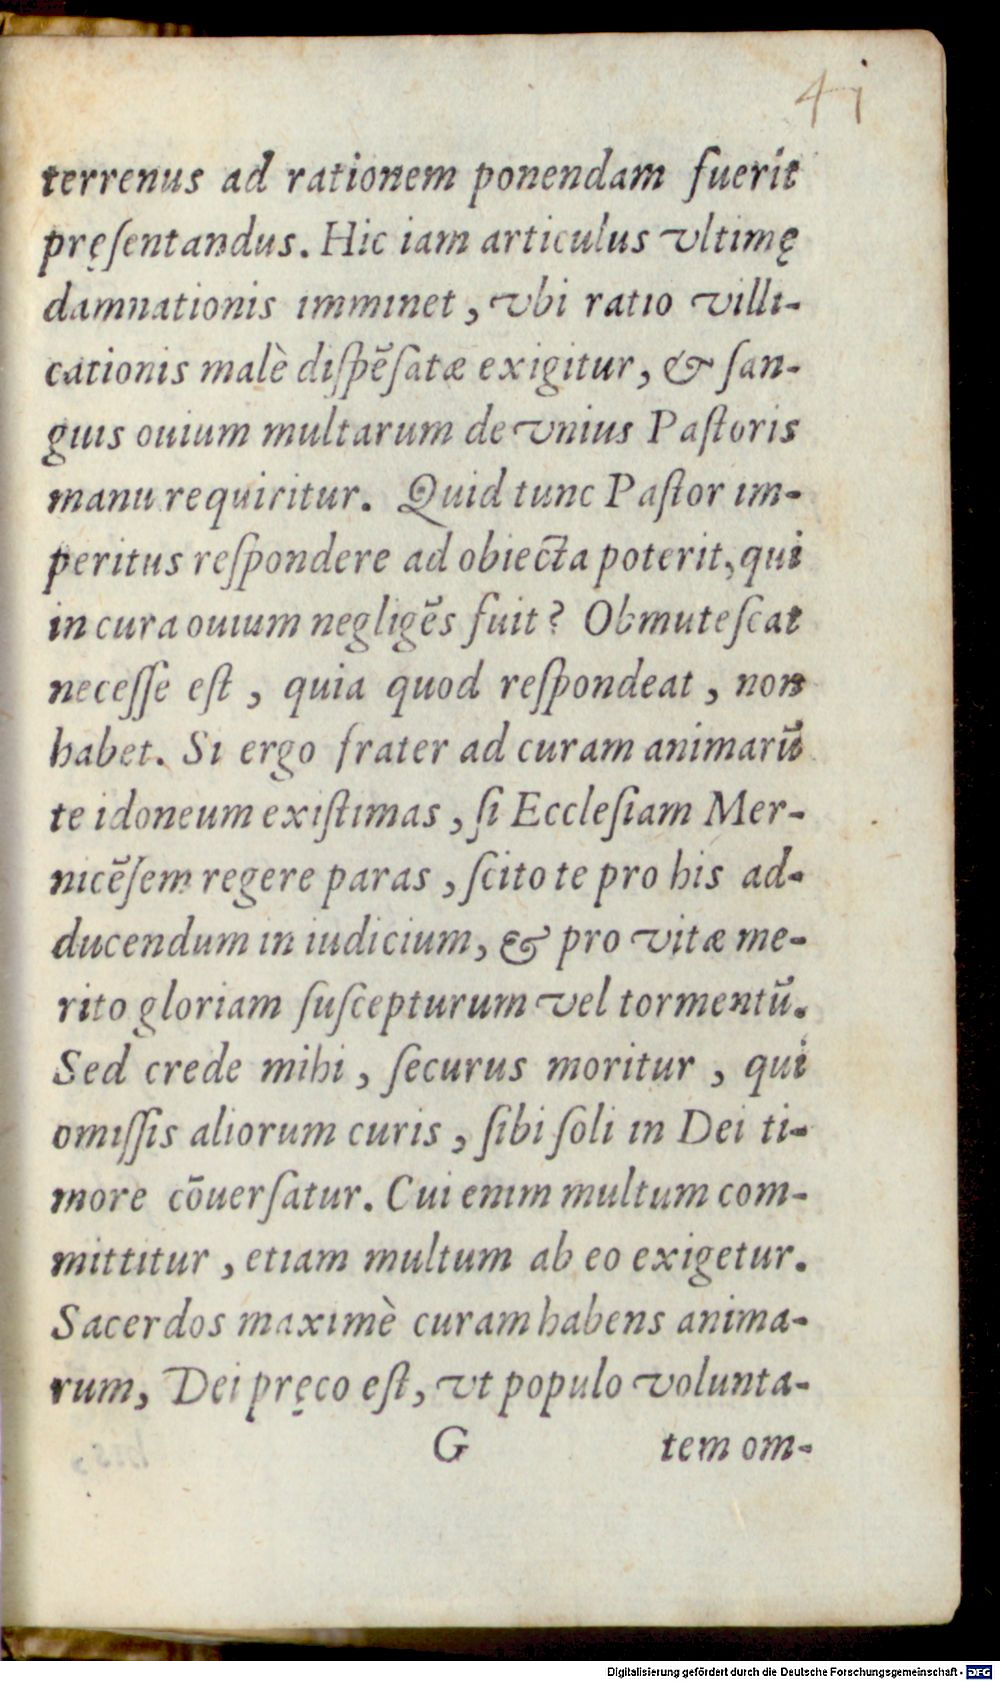 41
terrenus ad rationem ponendam fuerit
pręſentandus. Hic iam articulus vltimę
damnationis imminet, vbi ratio villi-
cationis malè diſpẽſatæ exigitur, & ſan-
guis ouium multarum de vnius Paſtoris
manu requiritur. Quid tunc Paſtor im-
peritus reſpondere ad obiecta poterit, qui
in cura ouium negligẽs fuit? Obmuteſcat
neceſſe eſt, quia quod reſpondeat, non
habet. Si ergo frater ad curam animarũ
te idoneum exiſtimas, ſi Eccleſiam Mer-
nicẽſem regere paras, ſcito te pro his ad-
ducendum in iudicium, & pro vitæ me-
rito gloriam ſuſcepturum vel tormentũ.
Sed crede mihi, ſecurus moritur, qui
omiſſis aliorum curis, ſibi ſoli in Dei ti-
more cõuerſatur. Cui enim multum com-
mittitur, etiam multum ab eo exigetur.
Sacerdos maximè curam habens anima-
rum, Dei pręco eſt, vt populo volunta-
G tem om-
Digitalisierung gefördert durch die Deutsche Forschungsgemeinschaft - DFG